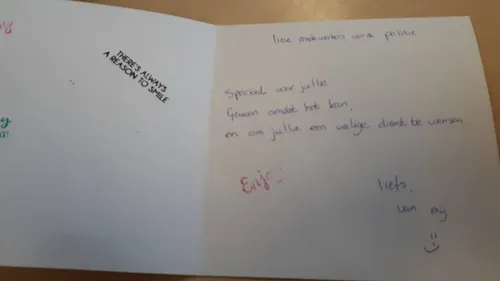 THERE'S ALWAYS
A REASON TO SMILE
lieve medewerkers van de politie
speciaal voor jullie
Gewoon omdat het kan,
en om jullie een veilige dienst te wensen
Enjoy
liefs,
van mij